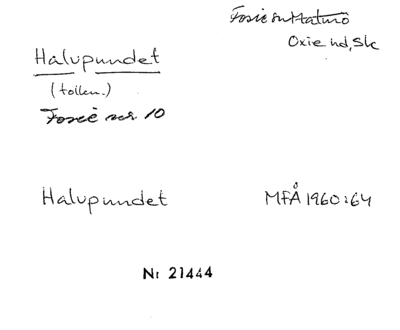 Fosie sn Malmö
Oxie hd, Sk
Halvpundet
(tolkn.)
Fosie nr 10
Halvpundet
MFÅ 1960:64
Nr 21444